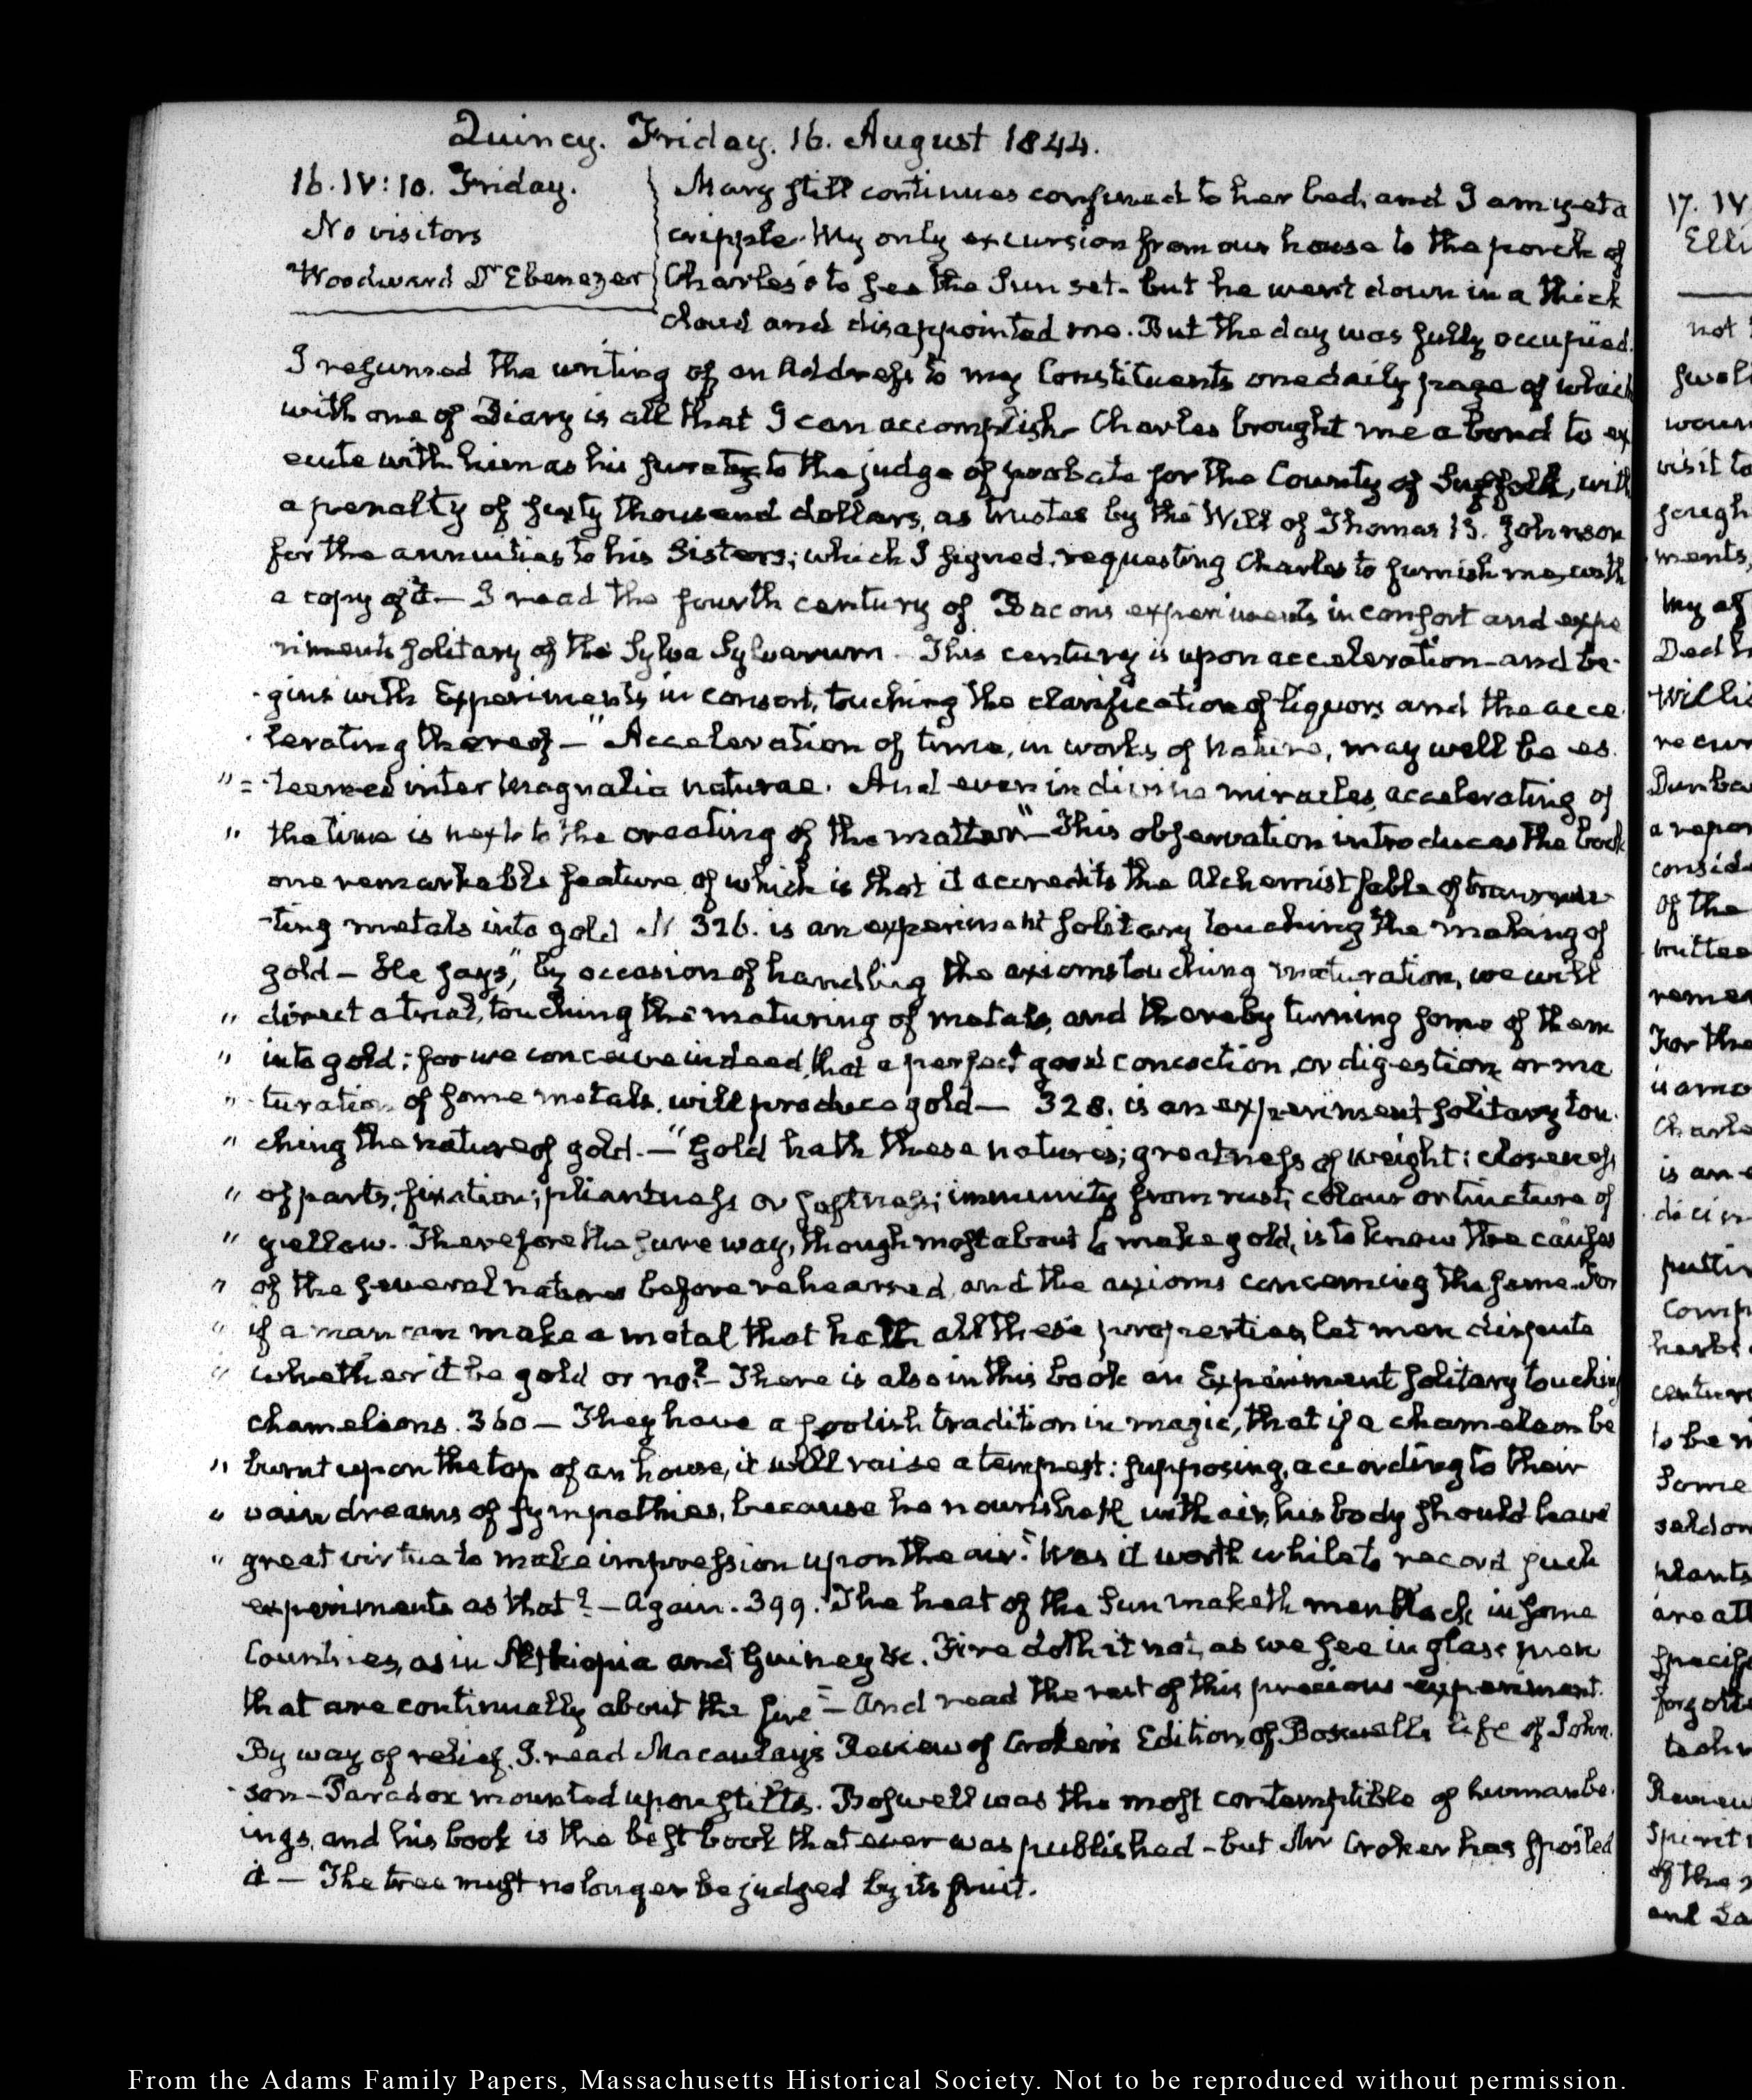 Quincy. Friday. 16. August 1844.
16. IV:10. Friday.
No visitors
Woodward Dr Ebenezer
Mary still continues confined to her bed, and I am yet a
cripple. My only excursion from our house to the porch of
Charles's to see the Sun set. but he went down in a thick
cloud and disappointed me. But the day was fully occupied.
I resumed the writing of an Address to my Constituents one daily page of which
with one of Diary is all that I can accomplish. Charles brought me a bond to ex
ecute with him as his surety to the judge of probate for the County of Suffolk, with
a penalty of sixty thousand dollars, as trustee by the Will of Thomas B. Johnson
for the annuities to his Sisters; which I signed, requesting Charles to furnish me with
a copy of it — I read the fourth century of Bacons experiments in consort and expe
riments solitary of the Sylva Sylvarum - This century is upon acceleration - and be-
gins with Experiments in consort, touching the clarification of liquors and the acce
lerating thereof — "Acceleration of time, in works of nature, may well be es.
" = teemed inter magnalia naturae. And even in divine miracles, accelerating of
" the time is next to the creating of the matter" — This observation introduces the book
one remarkable feature of which is that it accredits the Alchemist fable of
-ting metals into gold N 326. is an experiment solitary touching the making of
gold — He says, "by occasion of handling the axioms touching maturation, we will
" direct a trial, touching the maturing of metals, and thereby turning some of them
" into gold: for we conceive indeed, that a perfect good concoction, or digestion or ma
" turation of some metals, will produce gold — 328. is an experiment solitary tou
" ching the nature of gold. — "Gold hath these natures; greatness of weight: closeness
" of parts, fixation; pliantness or softness; immunity from rust; colour or tincture of
" yellow. Therefore the sure way, though most about to make gold, is to know the causes
" of the several natures before rehearsed, and the axioms concerning the same. For
" if a man can make a metal that hath all these properties, let men dispute
" whether it be gold or no? — There is also in this book an Experiment solitary touching
chamelions. 360 — They have a foolish tradition in magic, that if a chameleon be
" burnt upon the top of an house, it will raise a tempest: supposing, according to their
" vain dreams of sympathies, because he nourisheth with air, his body should have
" great virtue to make impression upon the air." Was it worth while to record such
experiments as that? — Again. 399. "The heat of the Sun maketh men black in some
Countries, as in Æthiopia and Guiney &c. Fire doth it not, as we see in glass men
that are continually about the fire" — And read the rest of this precious experiment.
By way of relief, I read Macaulay's Review of Croker's Edition of Boswells Life of John.
son — Paradox mounted upon stilts. Boswell was the most contemptible of human be-
ings, and his book is the best book that ever was published - but Mr Croker has spoiled
it — The tree must no longer be judged by its fruit.
From the Adams Family Papers, Massachusetts Historical Society. Not to be reproduced without permission.